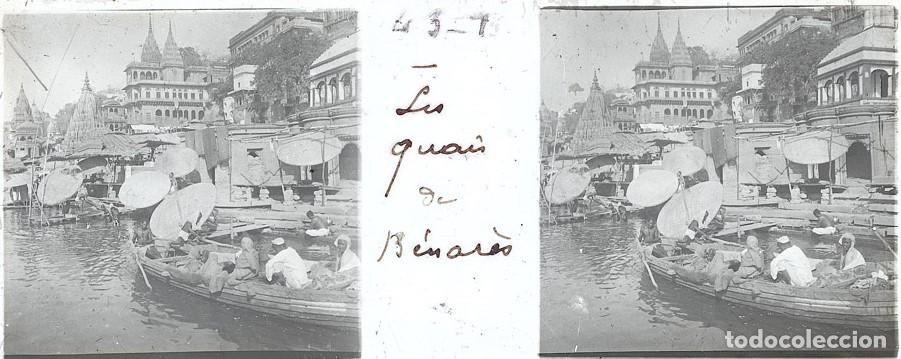 43-1
Les
quais
de
Bénarès
todocoleccion.net